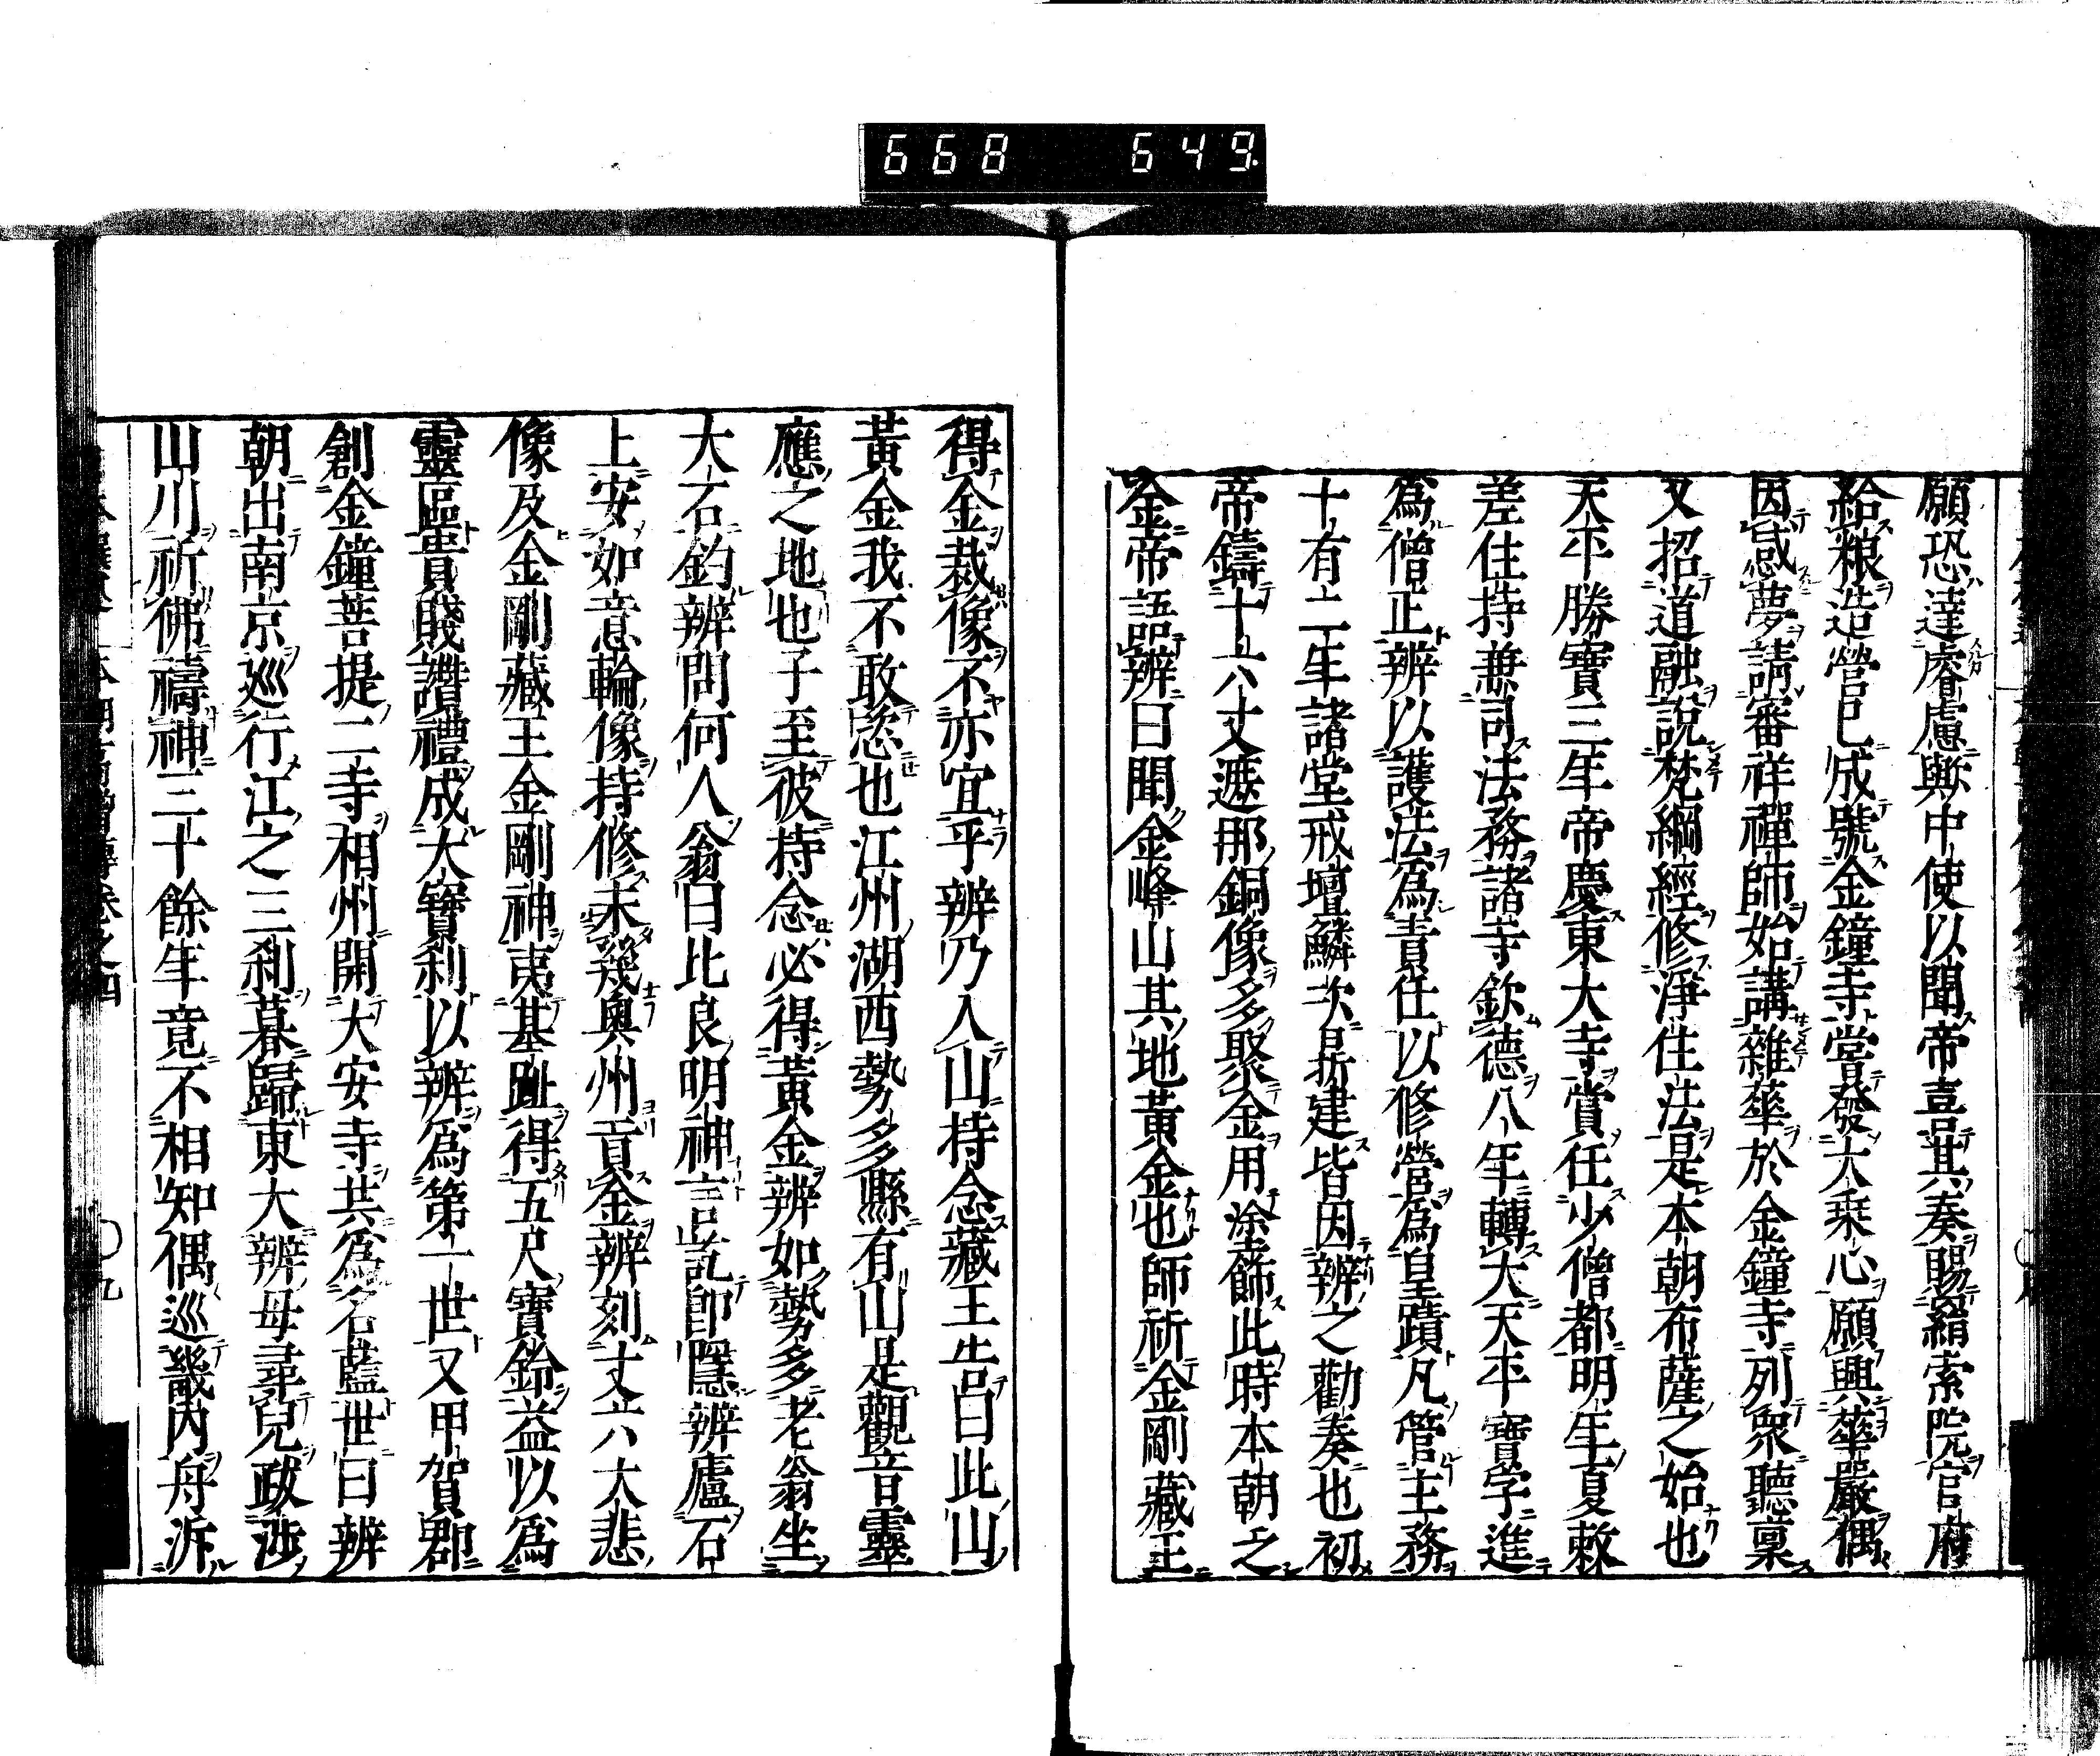 668 649
願恐達睿慮歟中使以聞帝喜其奏賜羂索院官府
給粮造營已成號金鐘寺甞發大乗心願興華嚴偶
因感夢請審祥禪師始講雜華於金鐘寺列衆聽稟
又招道融說梵綱經修淨住法是本朝布薩之始也
天平勝寶三年帝慶東大寺賞任少僧都明年夏敕
差住持兼司法務諸寺欽德八年轉大天平寶字進
爲僧正辨以護法爲責任以修營爲皇蹟凡管主務
十有二年諸堂戒壇鱗次昻建皆因辨之勸奏也初
帝鑄十六丈遮那銅像多聚金用塗飾此時本朝乏
金帝語辨曰聞金峰山其地黃金也師祈金剛藏王
得金裁像不亦宜乎辨乃入山持念藏王告曰此山
黃金我不敢恣也江州湖西勢多縣有山是觀音靈
應之地也子至彼持念必得黃金辨如勢多老翁坐
大石釣辨問何人翁曰比良明神言訖卽隱辨廬石
上安如意輪像持修未幾奧州貢金辨刻丈六大悲
像及金剛藏王金剛神夷基趾得五尺寶鈴益以爲
靈區貴賤讚禮成大寶刹以辨爲第一世又甲賀郡
創金鐘菩提二寺相州開大安寺共爲名藍世曰辨
朝出南京巡行江之三刹暮歸東大辨母尋兒跋涉
山川祈佛禱神三十餘年竟不相知偶巡畿内舟泝